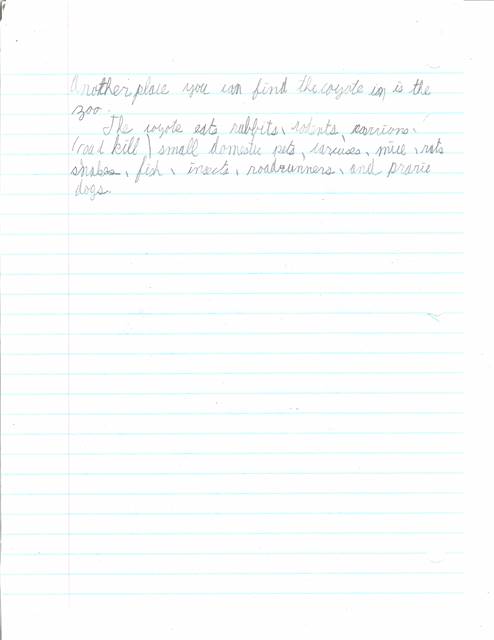 Another place you can find the coyote in is the
zoo.
The coyote eats rabbits, rotents, carrions,
(roat kill) small domestic pets, carcuses, mice, rats
snakes, fish, insects, roadrunners, and prarie
dogs.